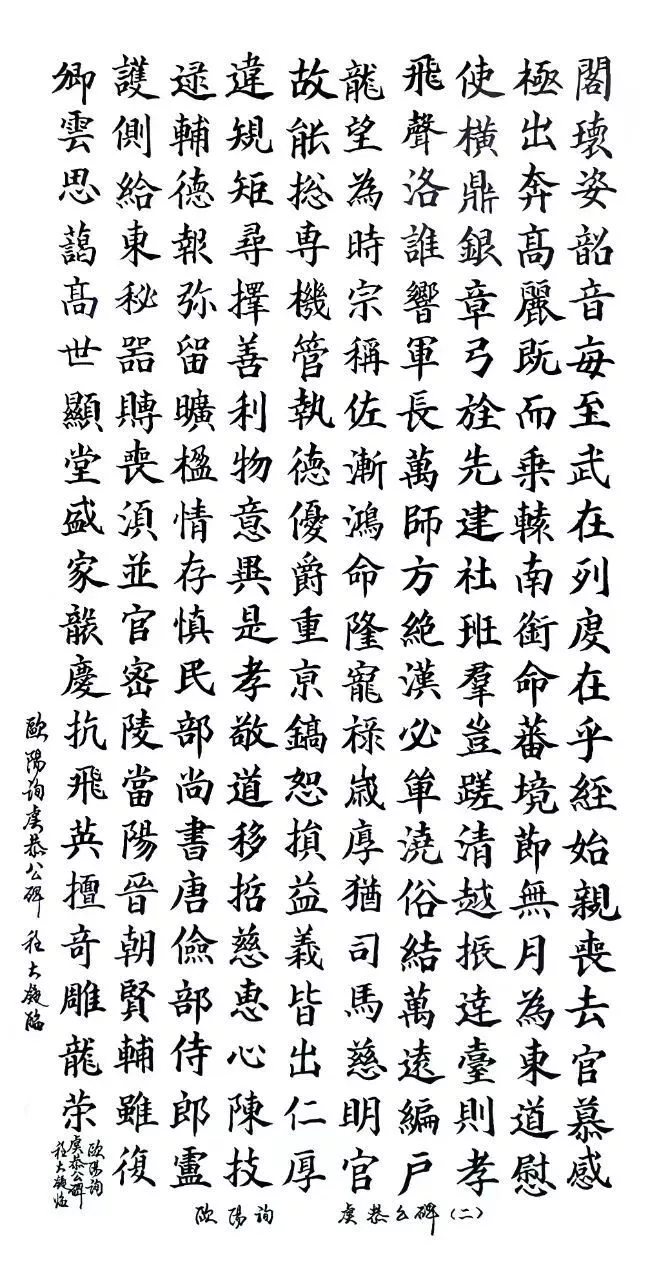 閣瓌姿韶音每至武在列庋在乎経始親喪去官慕感
極出奔高麗既而乗轅南銜命蕃境節無月為東道慰
使橫鼎銀章弓旌先建社班羣豈蹉清越振達臺則孝
飛聲洛誰響軍長萬師方絶漢必単澆俗結萬遠編戸
龍望為時宗稱佐漸鴻命隆寵禄歳厚猶司馬慈明官
故能揔専機管執德優爵重京鎬恕損益義皆出仁厚
違規矩尋擇善利物意異是孝敬道移哲慈恵心陳技
逯輔德報弥留曠楹情存慎民部尚書唐儉部侍郎盧
護側給東秘器賻喪湏並官密陵當陽晉朝賢輔雖復
卿雲思藹髙世顯堂盛家龑慶抗飛英擅奇雕龍荣
歐陽詢虞恭公碑 程大凝臨
歐陽詢
虞恭公碑
程大凝临
歐陽詢 虞恭公碑(二)